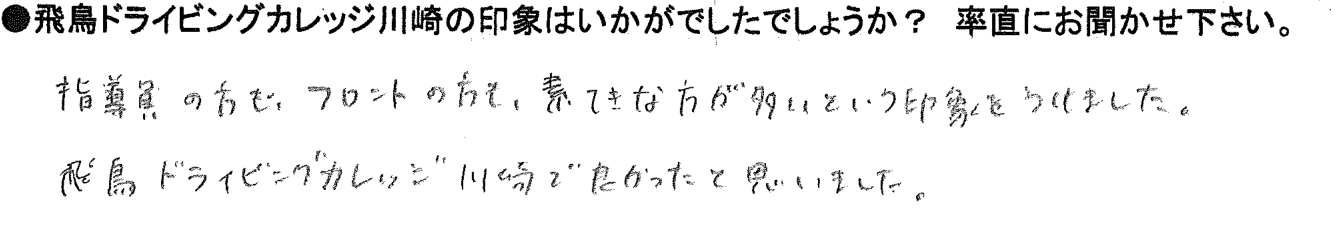 ●飛鳥ドライビングカレッジ川崎の印象はいかがでしたでしょうか？　率直にお聞かせ下さい。
指導員の方も、フロントの方も、素てきな方が多いという印象をうけました。
飛鳥ドライビングカレッジ川崎で良かったと思いました。